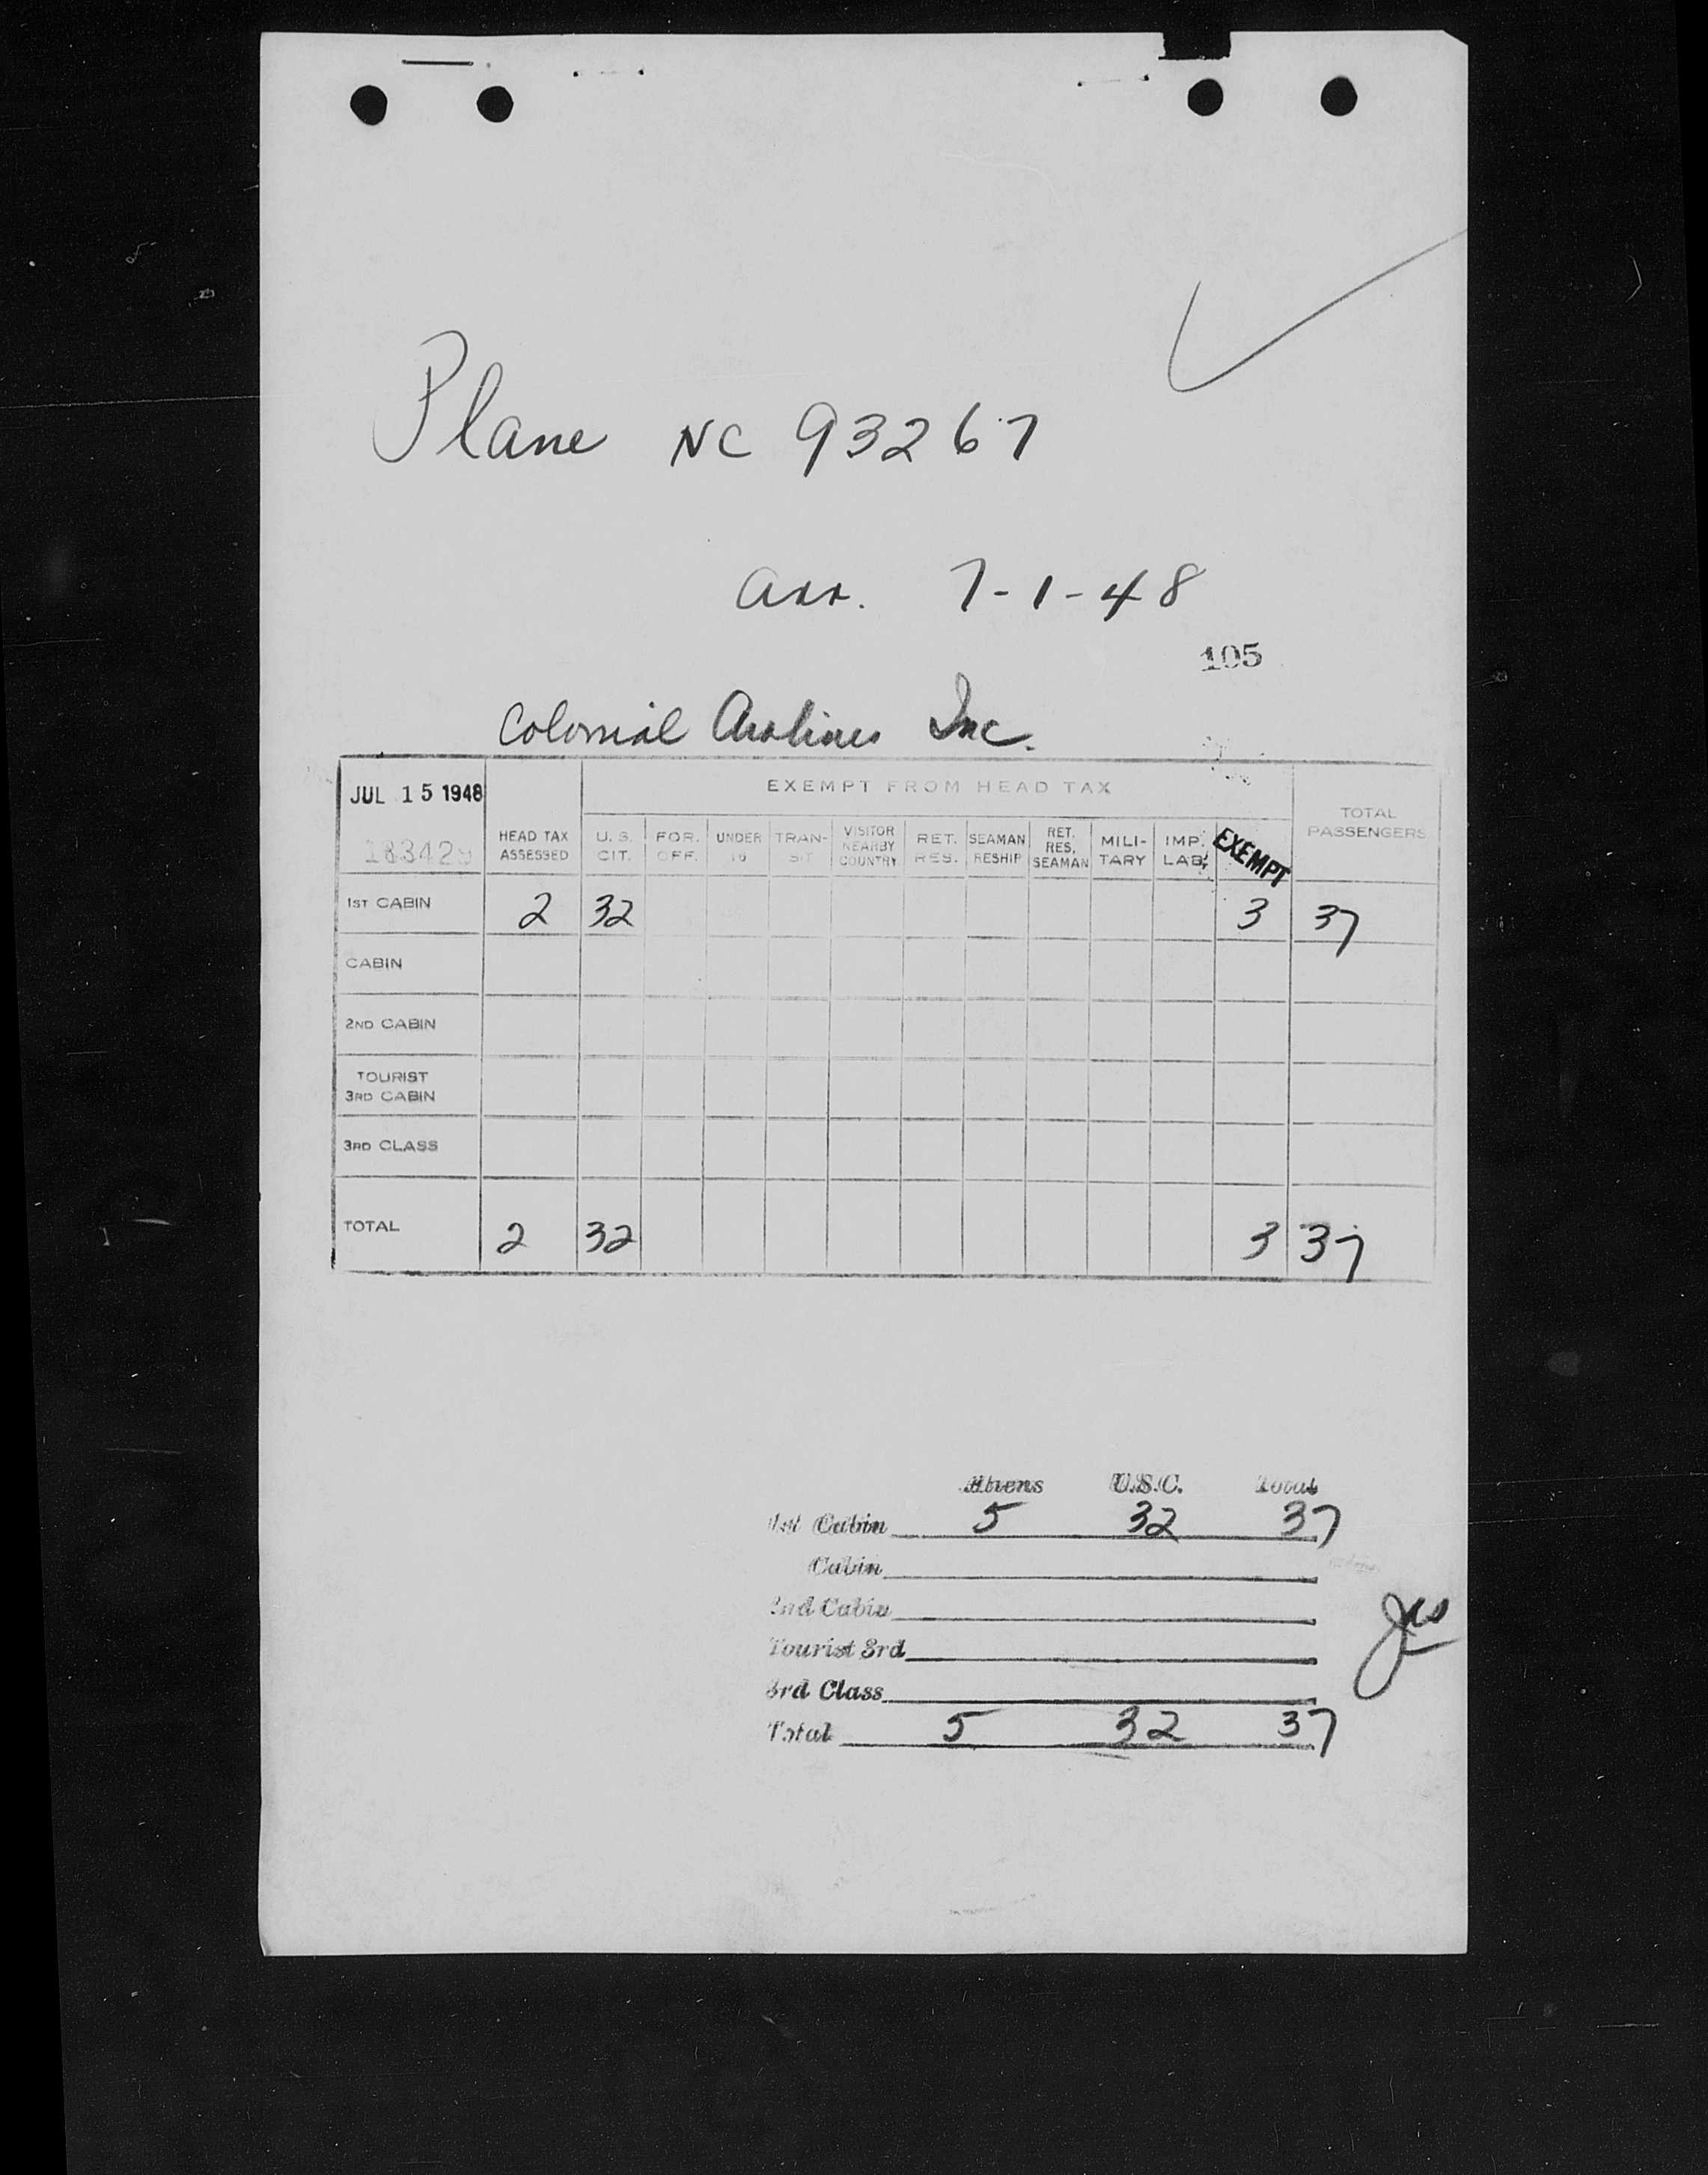 Plane NC 93267
arr. 7-1-48
105
Colonial Airlines Inc.
JUL 15 1948
EXEMPT FROM HEAD TAX
TOTAL PASSENGERS
HEAD TAX ASSESSED
U. S. CIT.
FOR. OFF.
UNDER 16
TRAN-SIT
VISITOR NEARBY COUNTRY
RET. RES.
SEAMAN RESHIP
RET. RES. SEAMAN
MILI-TARY
IMP. LAB.
EXEMPT
183429
1ST CABIN 2 32 3 37
CABIN
2ND CABIN
TOURIST
3RD CABIN
3RD CLASS
TOTAL 2 32 3 37
Aliens U.S.C. Total
1st Cabin 5 32 37
Cabin
2nd Cabin
Tourist 3rd
3rd Class
Total 5 32 37